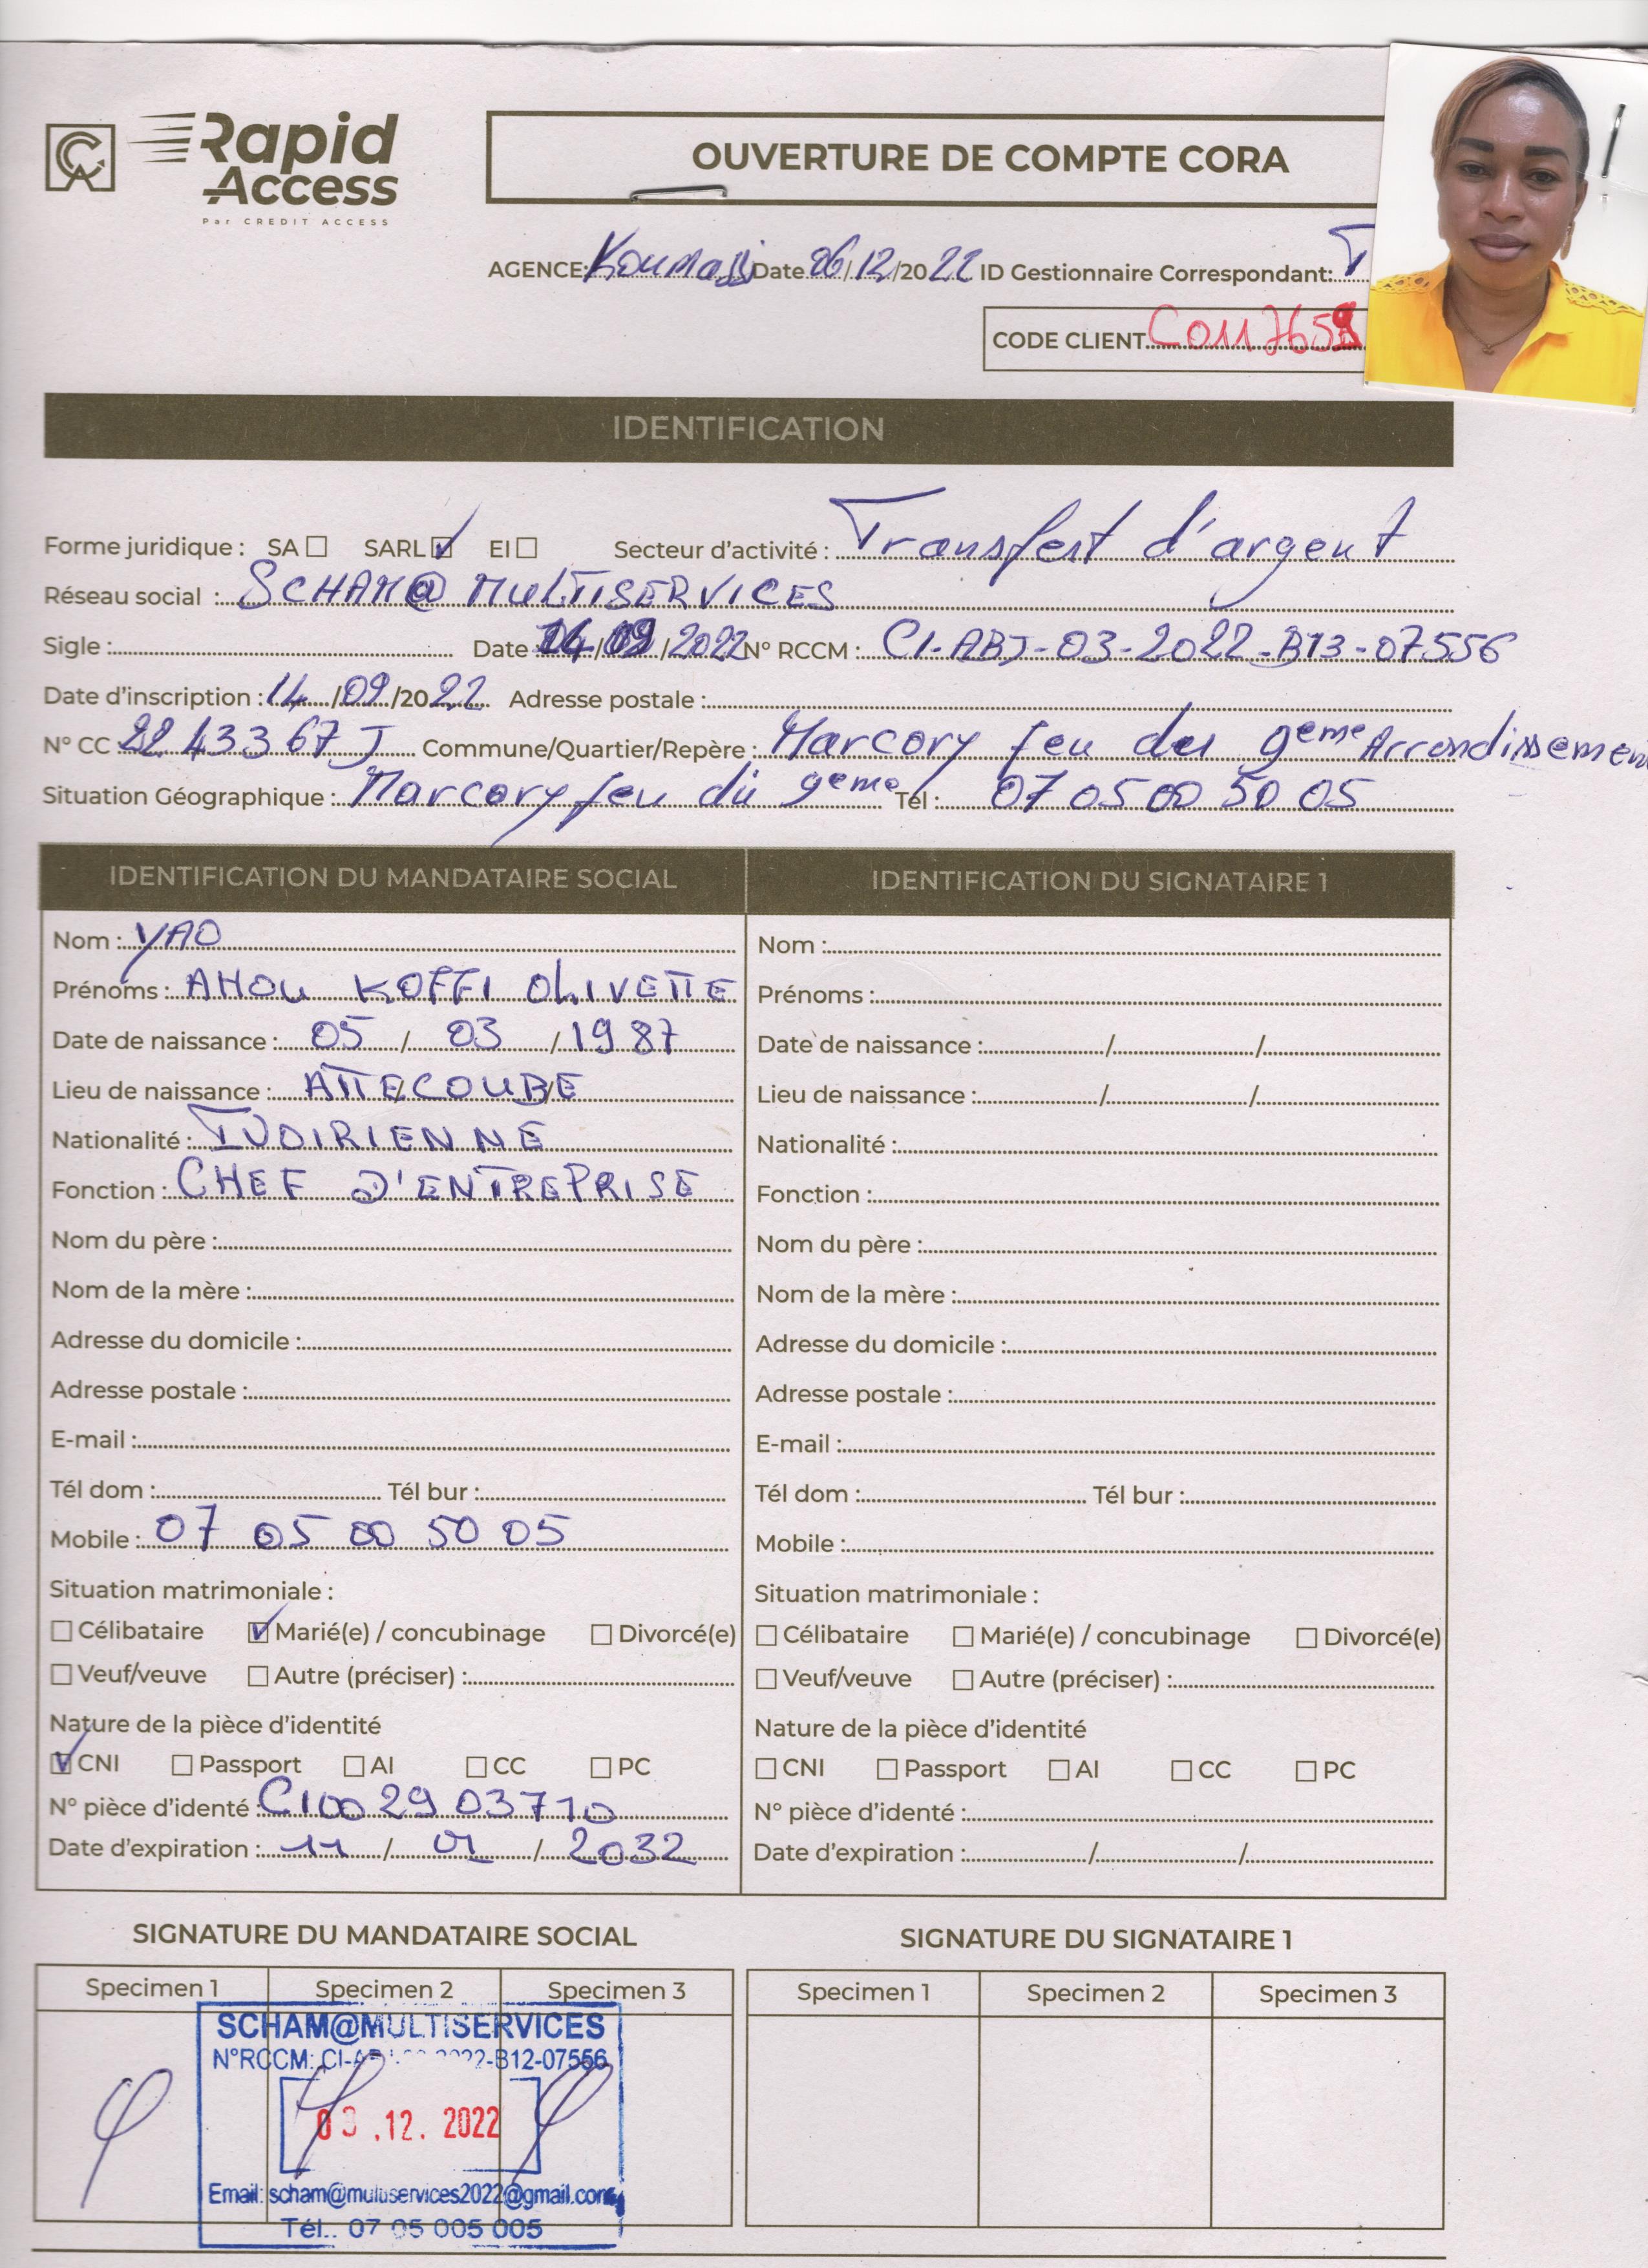 CA Rapid Access
Par CREDIT ACCESS
OUVERTURE DE COMPTE CORA
AGENCE: Koumassi Date 06/12/2022 ID Gestionnaire Correspondant: T
CODE CLIENT C0117659
IDENTIFICATION
Forme juridique : SA ☐ SARL ☑ EI ☐ Secteur d'activité : Transfert d'argent
Réseau social : SCHAM@ MULTISERVICES
Sigle : Date 14/09/2022 N° RCCM : CI-ABJ-03-2022-B13-07556
Date d'inscription : 14/09/2022 Adresse postale :
N° CC 2243367 J Commune/Quartier/Repère : Marcory feu du 9eme Arrondissemen
Situation Géographique : Marcory feu du 9eme Tél : 07 05 00 50 05
IDENTIFICATION DU MANDATAIRE SOCIAL
Nom : YAO
Prénoms : AHOU KOFFI OLIVETTE
Date de naissance : 05 / 03 / 1987
Lieu de naissance : ATTECOUBE
Nationalité : IVOIRIENNE
Fonction : CHEF D'ENTREPRISE
Nom du père :
Nom de la mère :
Adresse du domicile :
Adresse postale :
E-mail :
Tél dom : Tél bur :
Mobile : 07 05 00 50 05
Situation matrimoniale :
☐ Célibataire ☑ Marié(e) / concubinage ☐ Divorcé(e)
☐ Veuf/veuve ☐ Autre (préciser) :
Nature de la pièce d'identité
☑ CNI ☐ Passport ☐ AI ☐ CC ☐ PC
N° pièce d'identé : CI002903710
Date d'expiration : 11 / 01 / 2032
IDENTIFICATION DU SIGNATAIRE 1
Nom :
Prénoms :
Date de naissance : / /
Lieu de naissance : / /
Nationalité :
Fonction :
Nom du père :
Nom de la mère :
Adresse du domicile :
Adresse postale :
E-mail :
Tél dom : Tél bur :
Mobile :
Situation matrimoniale :
☐ Célibataire ☐ Marié(e) / concubinage ☐ Divorcé(e)
☐ Veuf/veuve ☐ Autre (préciser) :
Nature de la pièce d'identité
☐ CNI ☐ Passport ☐ AI ☐ CC ☐ PC
N° pièce d'identé :
Date d'expiration : / /
SIGNATURE DU MANDATAIRE SOCIAL
Specimen 1 Specimen 2 Specimen 3
SCHAM@MULTISERVICES
N°RCCM: 2022-B12-07556
03.12.2022
Email: scham@multiservices2022@gmail.com
Tél.: 07 05 005 005
SIGNATURE DU SIGNATAIRE 1
Specimen 1 Specimen 2 Specimen 3